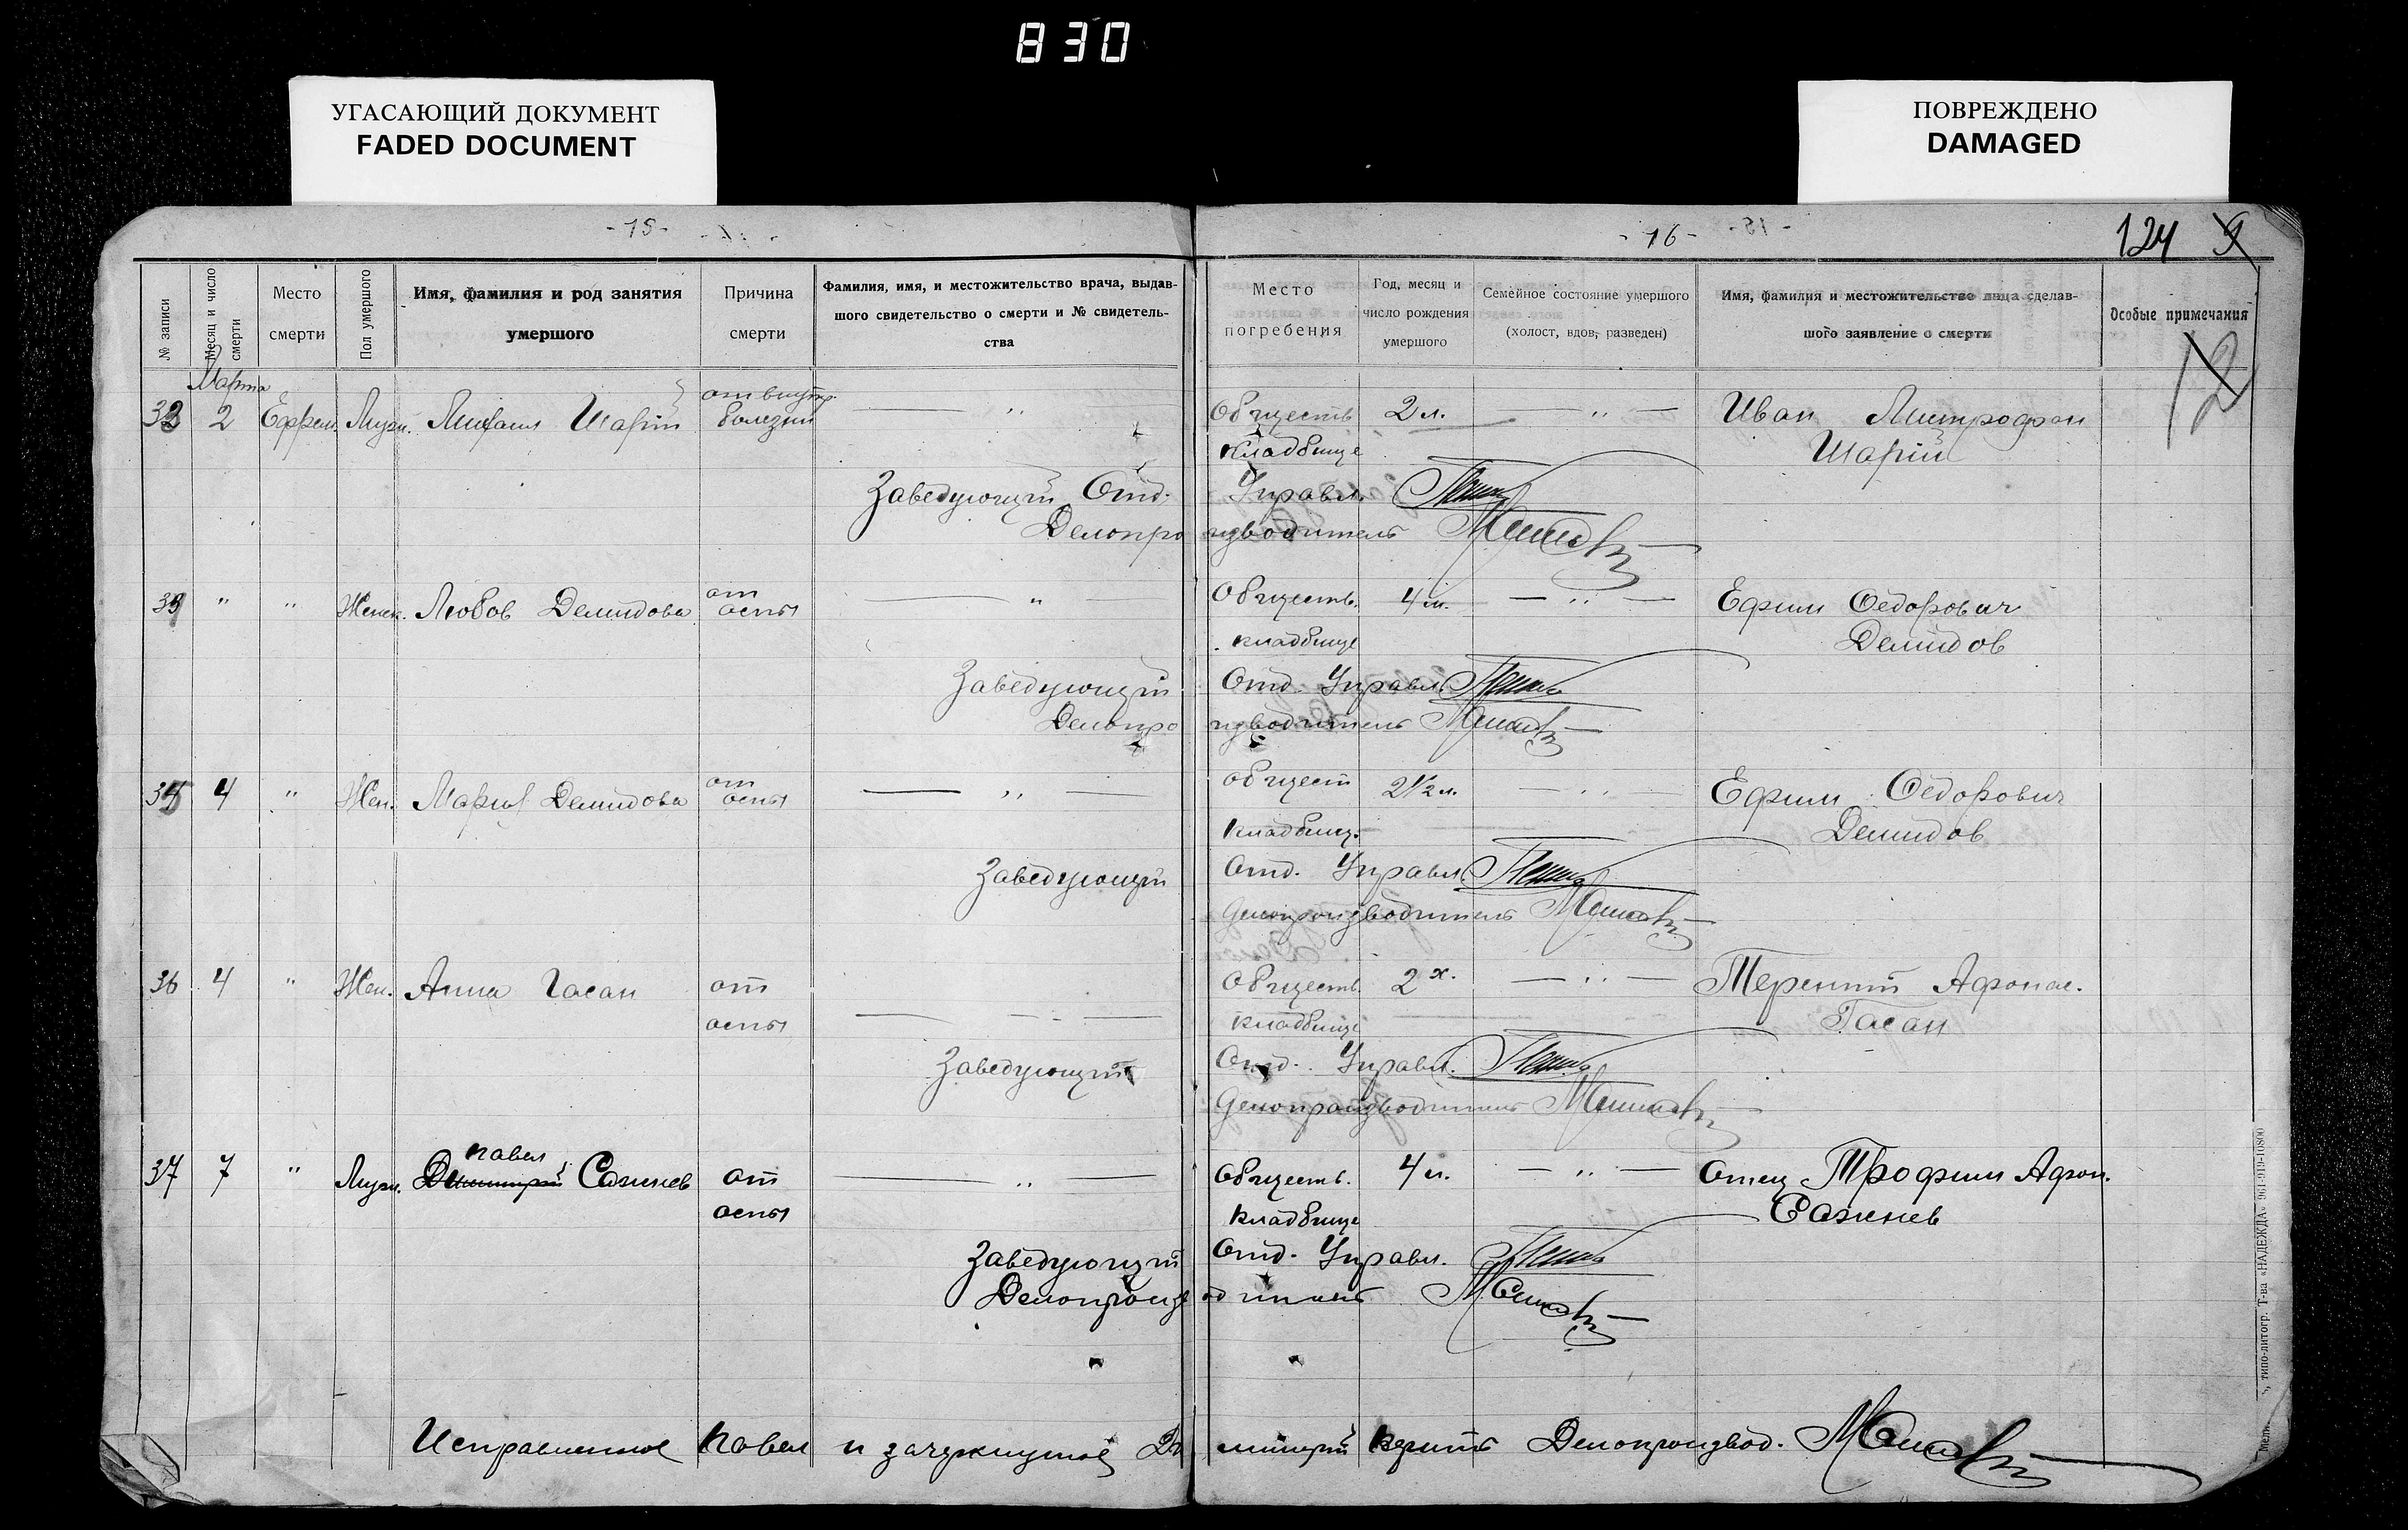 830
УГАСАЮЩИЙ ДОКУМЕНТ
FADED DOCUMENT
ПОВРЕЖДЕНО
DAMAGED
- 15 -
- 16 -
124 9
№ записи
Месяц и число смерти
Место смерти
Пол умершого
Имя, фамилия и род занятия умершого
Причина смерти
Фамилия, имя, и местожительство врача, выдав-
шого свидетельство о смерти и № свидетель-
ства
Место погребения
Год, месяц и число рождения умершого
Семейное состояние умершого
(холост, вдов, разведен)
Имя, фамилия и местожительство лица сделав-
шого заявление о смерти
Особые примечания
12
Марта
33 2 Ефрем. Муж. Шарій болезни — " Обществ. 2 л. — " — Иван Митрофан
кладбище Шарій
Заведующій Отд. Управл.
Делопроизводитель
" " Женск. Любов Демидова от оспы — " Обществ. 4 м. — " — Ефим Федорович
кладбище Демидов
Заведующій Отд. Управл.
Делопроизводитель
4 " Жен. Мария Демидова от оспы — " — общест 2 1/2 л. — " — Ефим Федорович
кладбищ. Демидов
Заведующій Отд. Управл.
Делопроизводитель
36 4 " Жен. Анна Гасан от Обществ. 2 — " — Терентій Афонас.
оспы кладбище Гасан
Заведующій Отд. Управл.
Делопроизводитель
Павел
37 7 " Муж. Димитрій Сажнев от — " — Обществ. 4 л. — " — Отец Трофим Афон.
оспы кладбище Сажнев
Заведующій Отд. Управл.
Делопроизводитель
Исправленное Павел и зачеркнутое Димитрій Делопроизвод.
типо-литогр. Т-ва «НАДЕЖДА» 961-919-10800